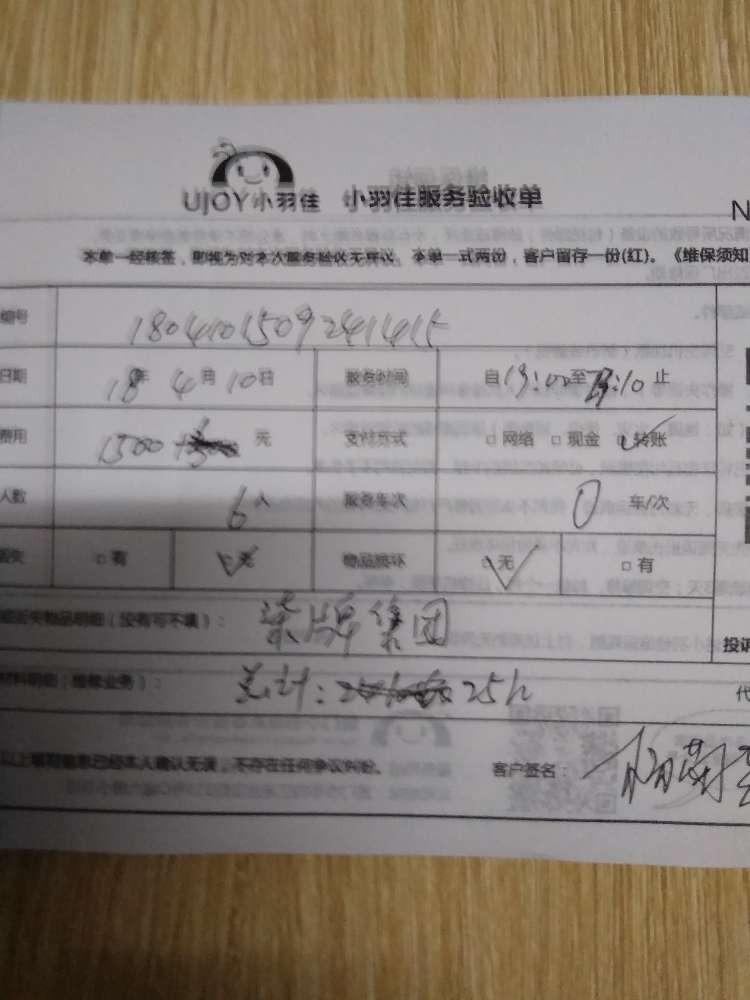 UJOY小羽佳 小羽佳服务验收单
N
本单一经核签，即视为对本次服务验收无异议。本单一式两份，客户留存一份(红)。《维保须知
编号 1804101509241415
日期 18年 4月 10日 服务时间 自13:00至 :10止
费用 1500 元 支付方式 网络 现金 转账
人数 6人 服务车次 0 车/次
丢失 有 无 物品损坏 无 有
丢失物品明细（没有可不填）： 集团
投诉
材料明细（维修业务）： 总计： 25h
代
以上填写信息已经本人确认无误，不存在任何争议纠纷。 客户签名：